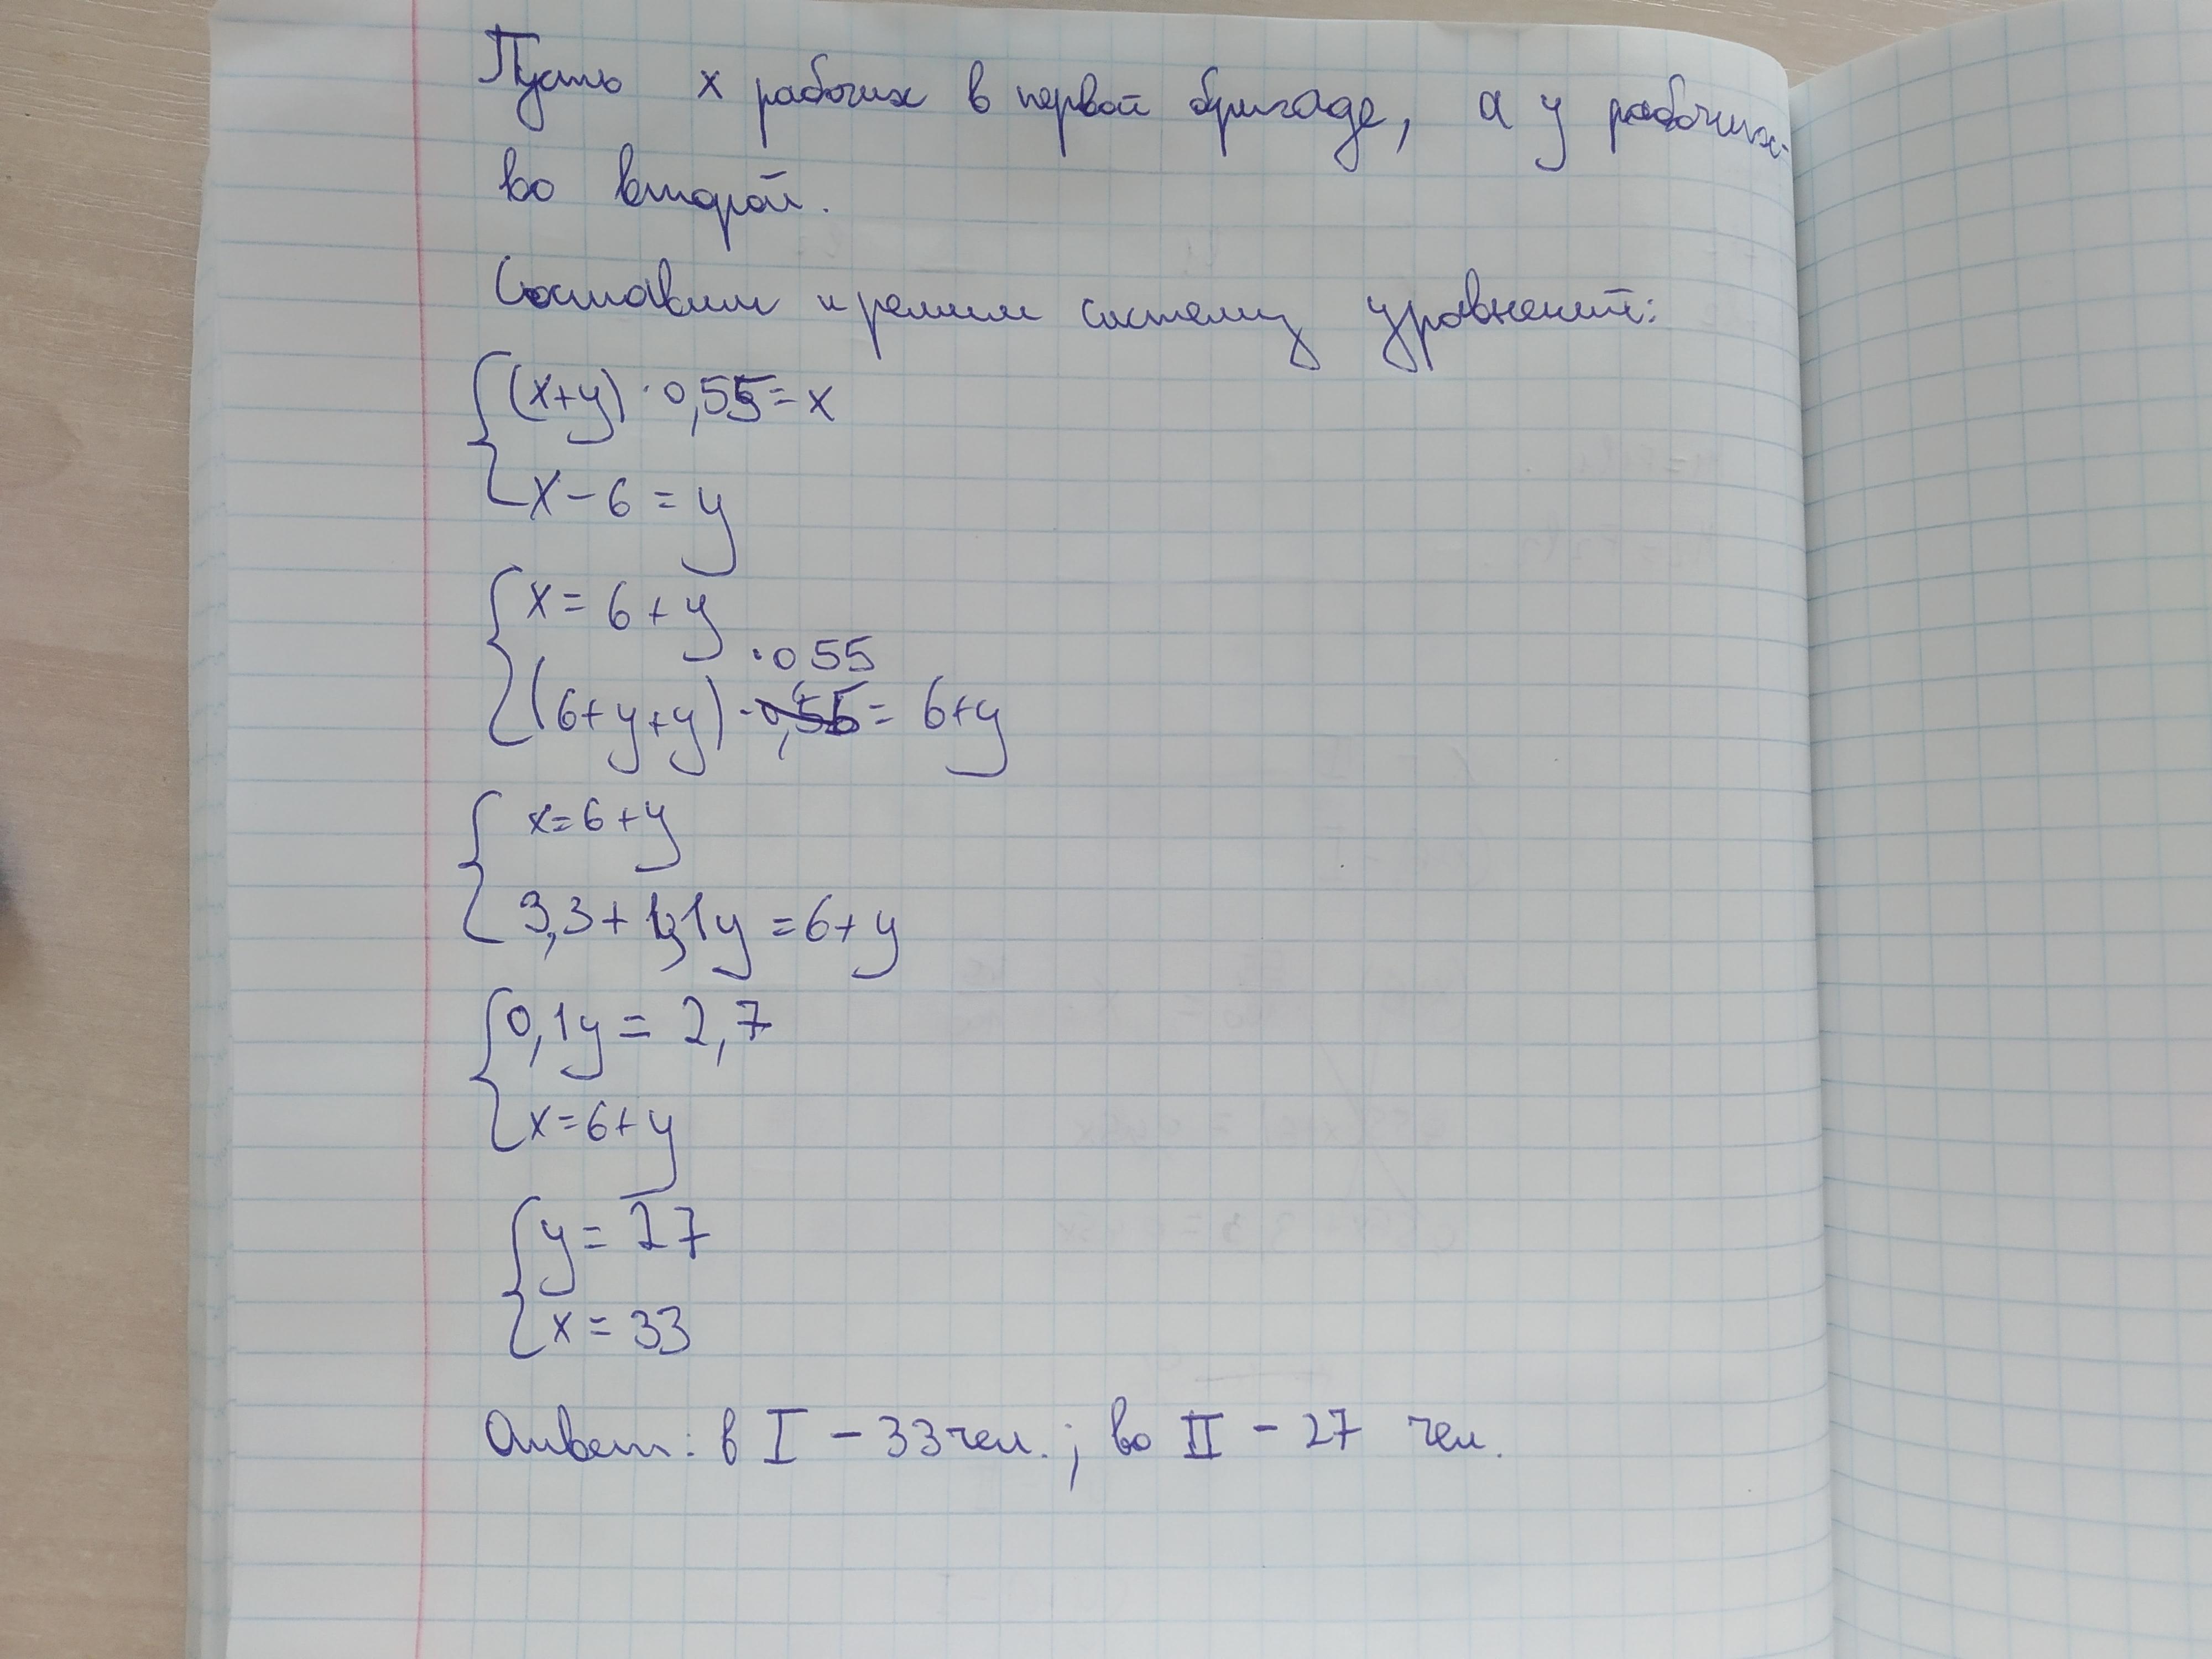 Пусть x рабочих в первой бригаде, а y рабочих -
во второй.
Составим и решим систему уравнений:
(x+y) · 0,55 = x
x - 6 = y
x = 6 + y
· 0 55
(6+y+y) · 0,55 = 6+y
x = 6 + y
3,3 + 1,1y = 6 + y
0,1y = 2,7
x = 6 + y
y = 27
x = 33
Ответ: в I - 33 чел.; во II - 27 чел.